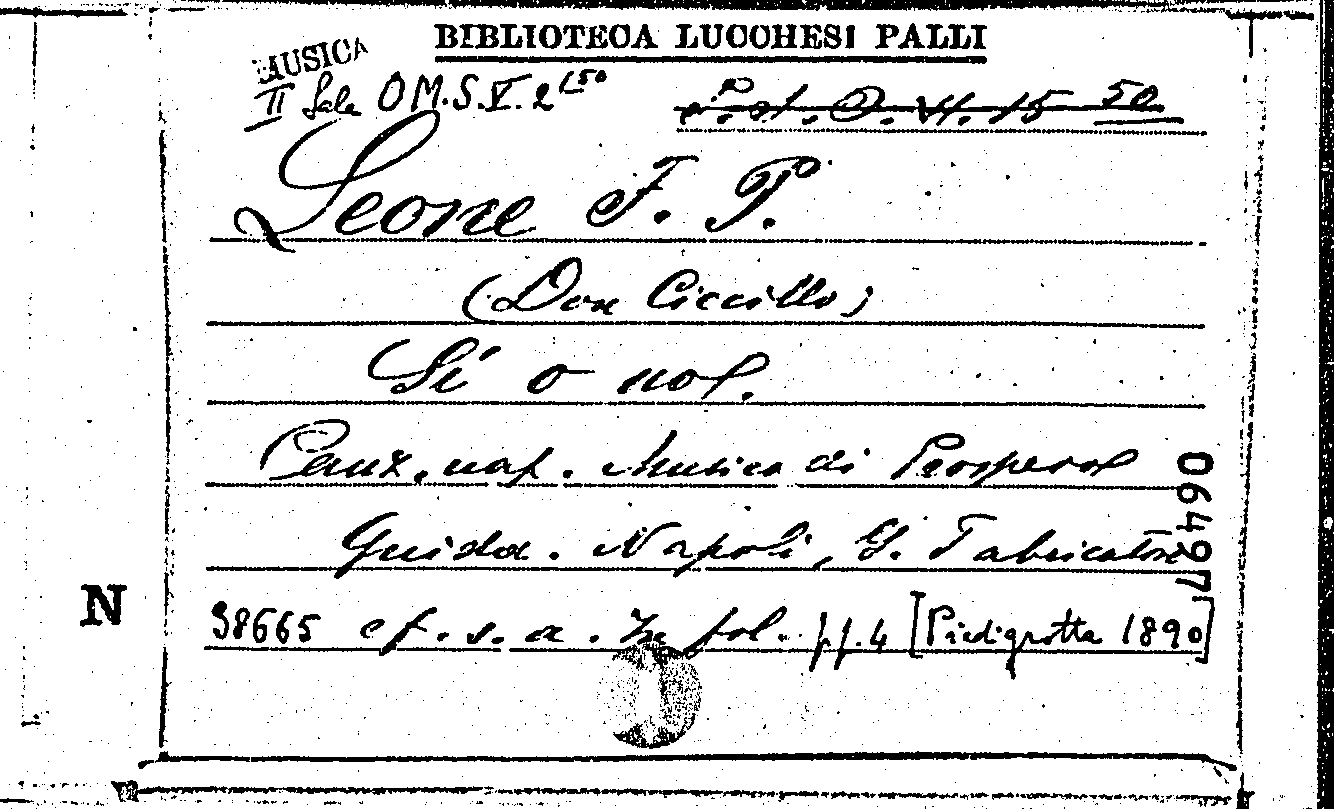 BIBLIOTECA LUCCHESI PALLI
MUSICA
II Sala O M.S.V. 2 (50
Leone F. P.
(Don Ciccillo)
Sì o no?.
Canz. nap. Musica di Prospero
Guida. Napoli, G. Fabricatore
e f. s. a. In fol. pp. 4 [Piedigrotta 1890]
38665
06497
N